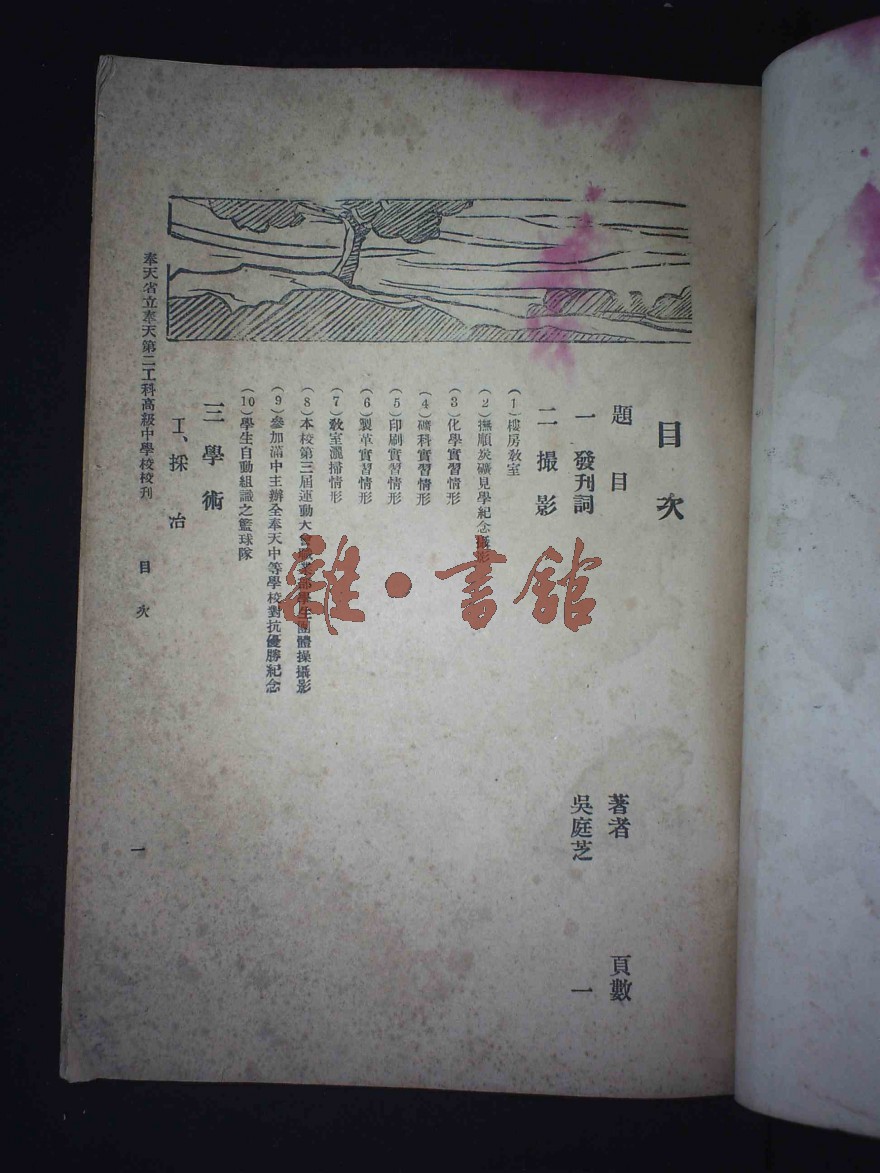 目次
題目　著者　頁數
一　發刊詞　吳庭芝　一
二　撮影
(1)樓房教室
(2)撫順炭礦見學紀念攝影
(3)化學實習情形
(4)礦科實習情形
(5)印刷實習情形
(6)製革實習情形
(7)教室灑掃情形
(8)本校第三屆運動大會職業部學生團體操攝影
(9)參加滿中主辦全奉天中等學校對抗優勝紀念
(10)學生自動組識之籃球隊
三　學術
工、採冶
奉天省立奉天第二工科高級中學校校刊　目次　一
雜·書館